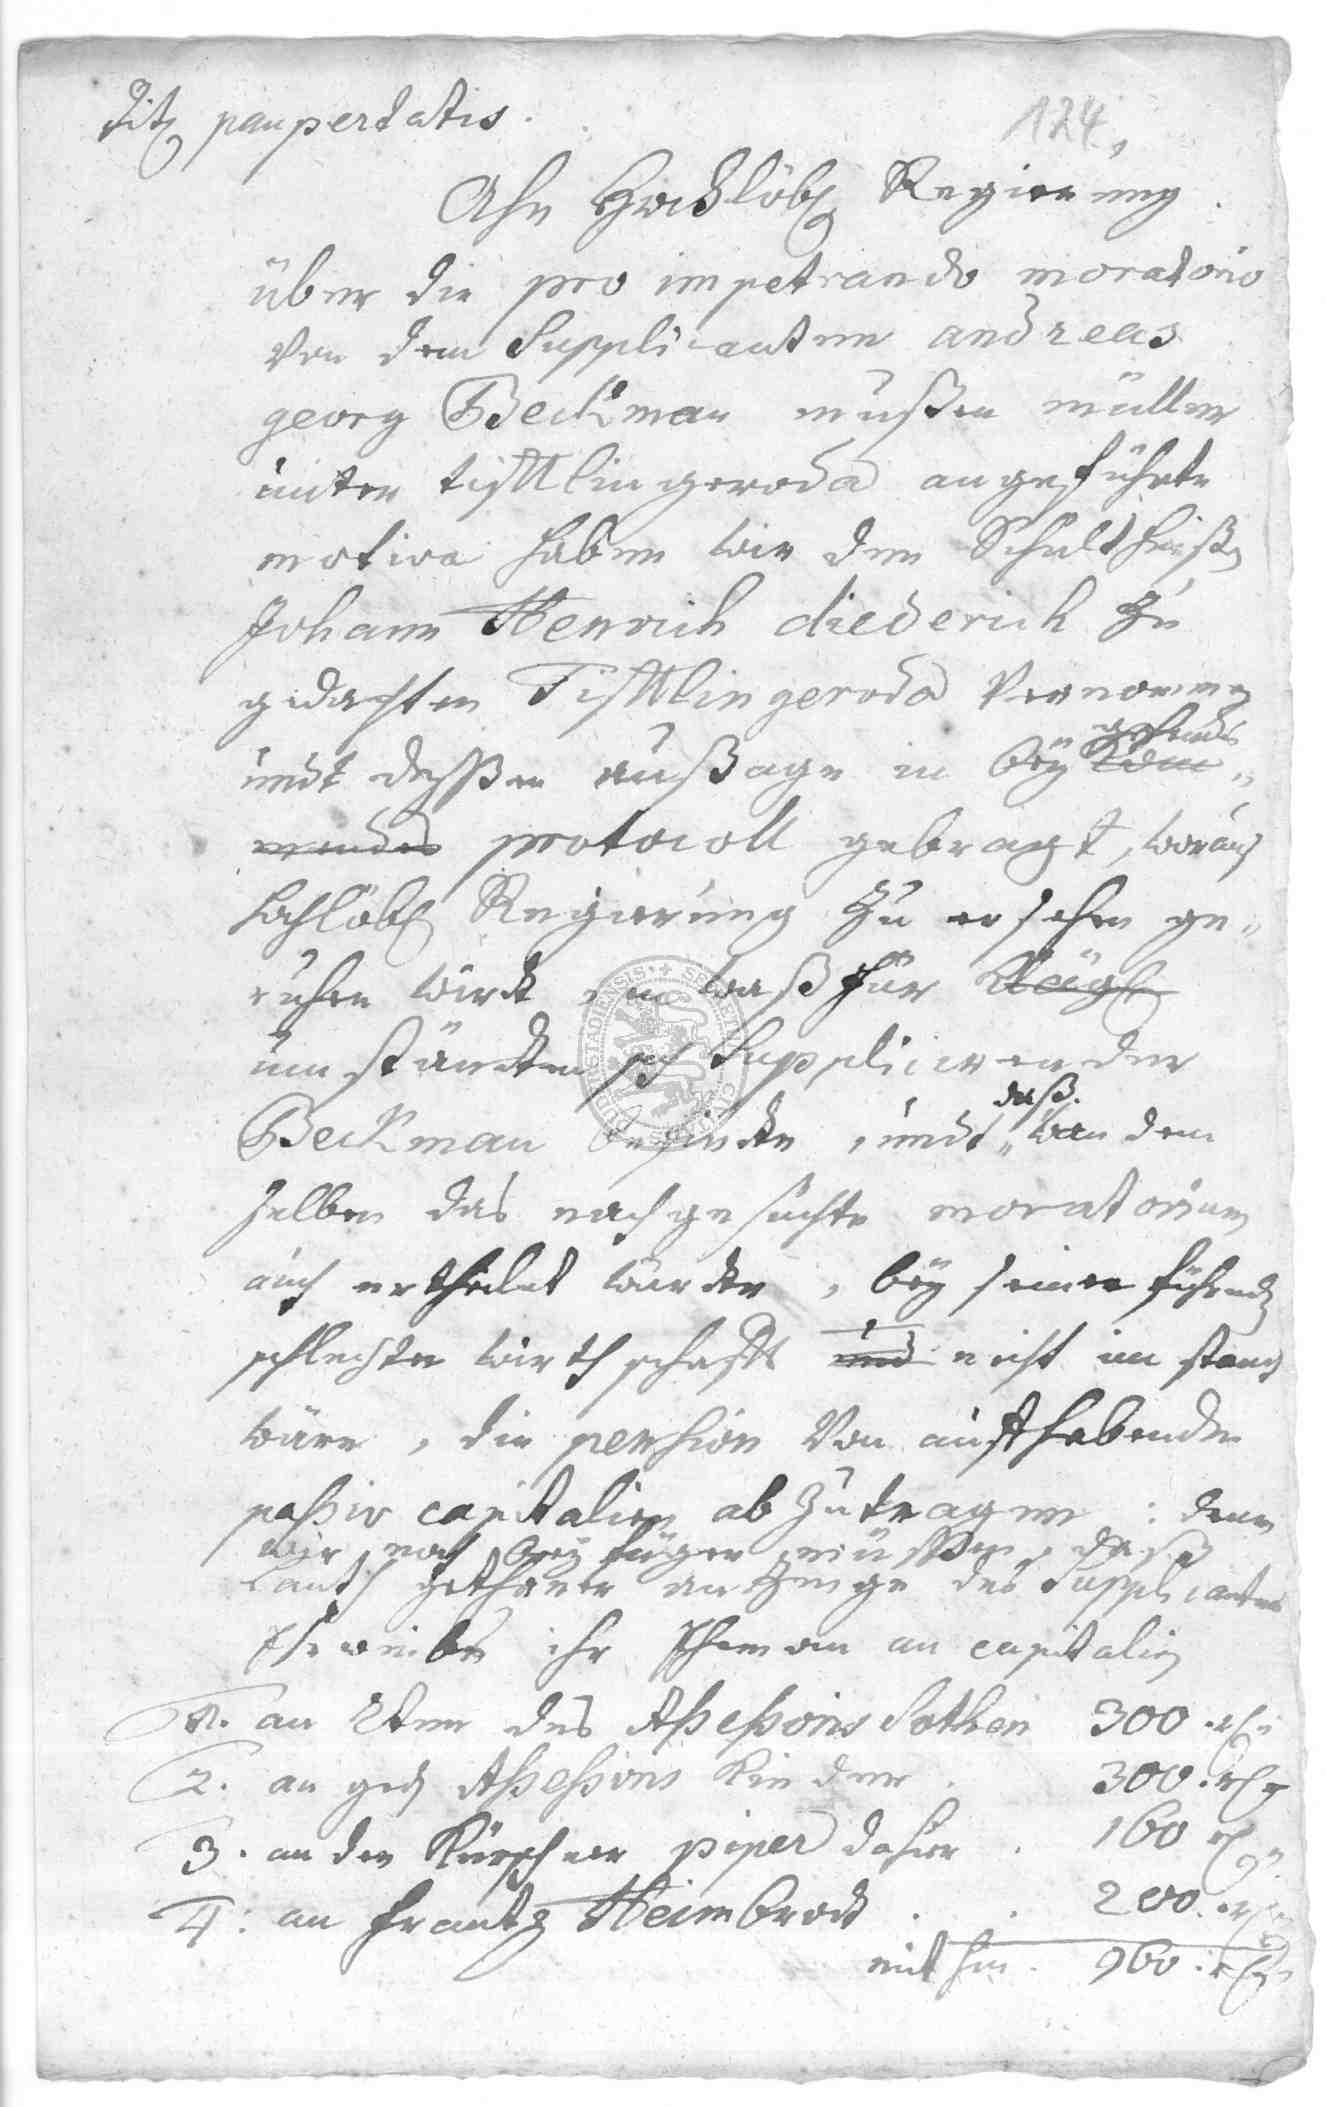 Tit paupertatis.
124,
Ahn Hochlöbl Regierung
über die pro impetrando moratorio
Von dem Supplicanten andreas
georg Beckman mußen müller
unter tistlingeroda angeführte
motiva haben wir den Schultheiß
Johann Henrich diederich Zu
gedachten Tistlingeroda Vernommen
undt deßen außage in bey kom„
gehends
mendes protocoll gebragt, worauß
hochlöbl Regierung Zu ersehen ge„
ruhen wirdt, in waß für Klägl
umständen sich Supplicirender
Beckman befinde, undt „ wan dem
daß
selben das nachgesuchte moratorium
auch ertheilet würde, bey seiner führend
schlechten wirthschafft und nicht im stand
wäre, die pension Von aufhabenden
paßiv capitalien ab Zutragen: denn
wir noch bey fügen müßen, daß
lauth gethaner anZeige des Supplicanten
Eheweibs ihr Eheman an capitalien
1. an Erben des Aßeßoris Sothen 300 rth
2. an ged Aßeßoris Kinder. 300 rth
3. an den Kürschner piper dahier. 160 rth
4: an frantz Heimbrodt . . 200 rth
mit hin. 960 rth
SECRETUM
CIVITATIS
DUDERSTADIENSIS